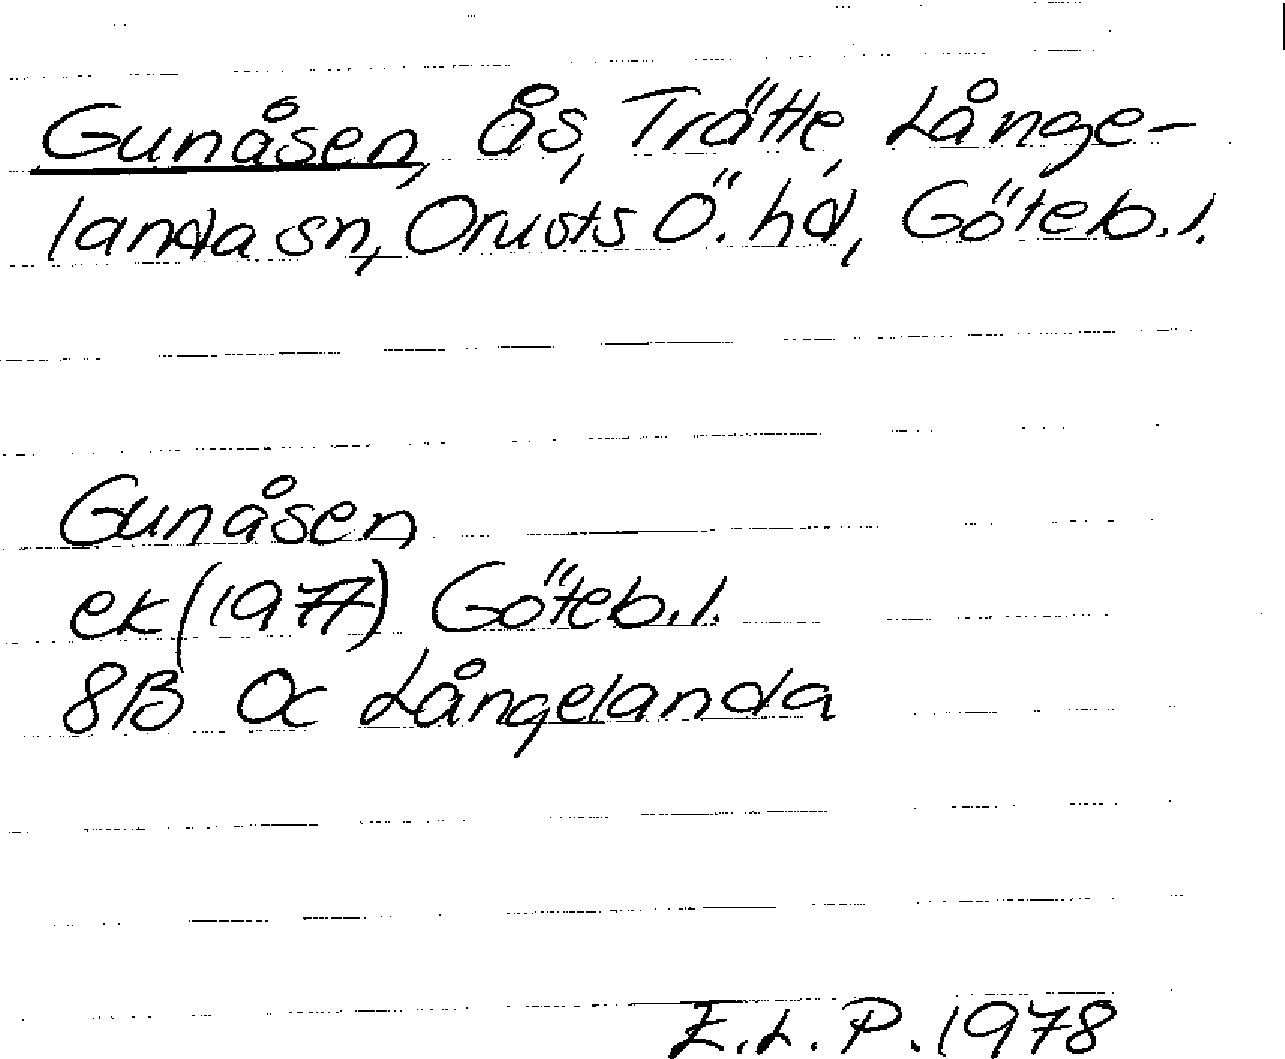 Gunåsen, ås, Trätte, Långe-
landa sn, Orusts Ö. hd, Göteb.l.
Gunåsen
ek (1977) Göteb.l.
8B 0c Långelanda
E.L.P. 1978